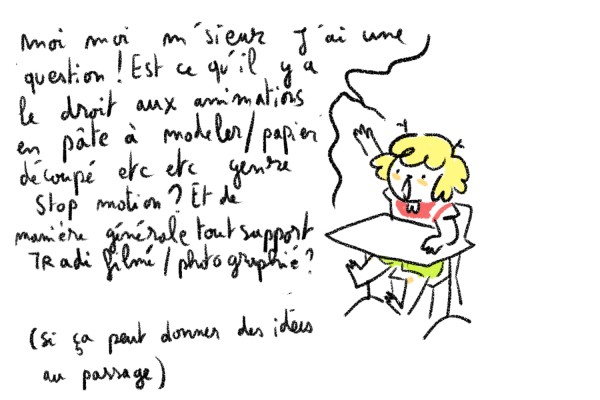 moi moi m'sieur j'ai une
question ! Est ce qu'il y a
le droit aux animations
en pâte à modeler / papier
découpé etc etc genre
Stop motion ? Et de
manière générale tout support
TRadi filmé / photographié ?
(si ça peut donner des idées
au passage)